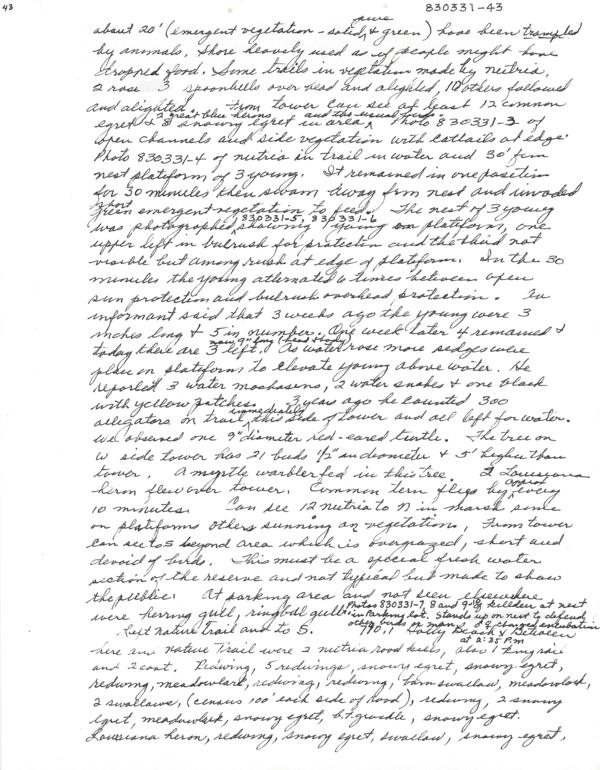 43
830331-43
pure
about 20' (emergent vegetation - solid, & green) have been trampled
by animals. Shore heavily used as if people might have
dropped food. Some trails in vegetation made by nutria.
2 rose 3 spoonbills over head and alighted, 10 others followed
and alighted. From tower can see at least 12 common
2 great blue herons and the usual
egret & 8 snowy egret in area. Photo 830331-3 of
open channels and side vegetation with cattails at edge.
Photo 830331-4 of nutria in trail in water and 30' from
nest platform of 3 young. It remained in one position
for 30 minutes then swam away from nest and invaded
short
green emergent vegetation to feed. The nest of 3 young
830331-5, 830331-6
was photographed, showing young on platform, one
upper left in bulrush for protection and the third not
visible but among rush at edge of platform. In the 30
minutes the young alternated 6 times between open
sun protection and bulrush overhead protection. An
informant said that 3 weeks ago the young were 3
inches long & 5 in number. One week later 4 remained &
now 9" long (head & body)
today there are 3 left. As water rose more sedges were
place on platform to elevate young above water. He
reported 3 water moccasons, 2 water snakes & one black
with yellow patches. 3 years ago he counted 300
immediately
alligators on trail, this side of tower and all left for water.
We observed one 9" diameter red-eared turtle. The tree on
W side tower has 21 buds 1/2" in diameter & 5' higher than
tower. A myrtle warbler fed in this tree. 2 Louisiana
approx
heron flew over tower. Common tern flies by every
10 minutes. Can see 12 nutria to N in marsh some
on platforms others sunning on vegetation. From tower
can see to S beyond area which is overgrazed, short and
devoid of birds. This must be a special fresh water
section of the reserve and not typical but made to show
the public. At parking area and not seen elsewhere
were herring gull, ringbill gull. Photos 830331-7, 8 and 9 of killdeer at nest
in Parking lot. Stands up on nest to defend
other birds or man. changed incubation
Left Nature Trail and to S. 790.1 Holly Beach &
at 2:35 P.M
here are Nature Trail were 2 nutria road kills, also 1 king rail
and 2 coot. Redwing, 5 redwings, snowy egret, snowy egret,
redwing, meadowlark, redwing, redwing, barn swallow, meadowlark,
2 swallows, (census 100' each side of road), redwing, 2 snowy
egret, meadowlark, snowy egret, b.t. grackle, snowy egret.
Louisiana heron, redwing, snowy egret, swallow, snowy egret,